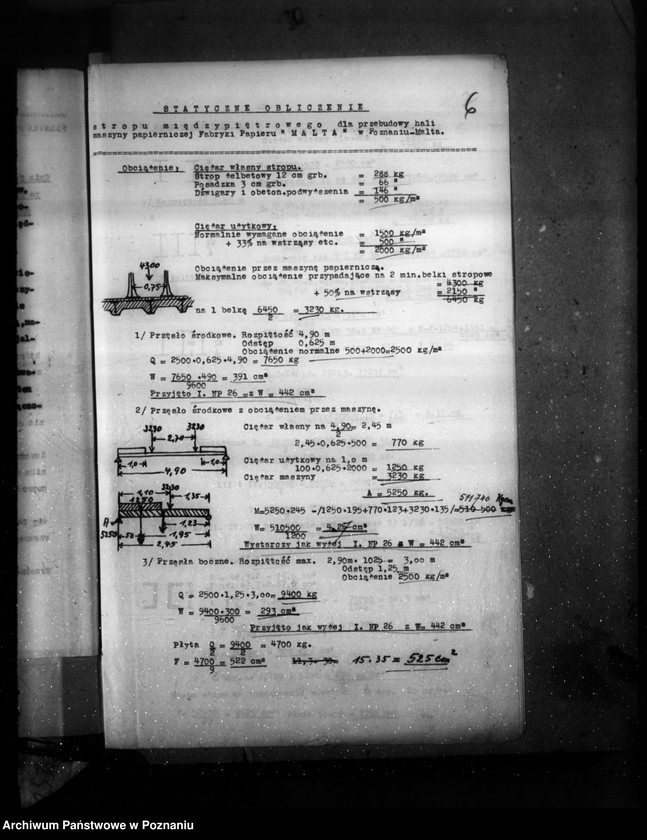 6
STATYCZNE OBLICZENIE
stropu międzypiętrowego dla przebudowy hali
maszyny papierniczej Fabryki Papieru "MALTA" w Poznaniu-Malta.
Obciążenie: Ciężar własny stropu.
Strop żelbetowy 12 cm grb. = 288 kg
Posadzka 3 cm grb. = 66 "
Dźwigary i obeton.podwyższenia = 146 "
= 500 kg/m²
Ciężar użytkowy:
Normalnie wymagane obciążenie = 1500 kg/m²
+ 33% na wstrząsy etc. = 500 "
= 2000 kg/m²
Obciążenie przez maszynę papierniczą.
Maksymalne obciążenie przypadające na 2 min.belki stropowe
= 4300 kg
+ 50% na wstrząsy = 2150 "
= 6450 kg
4300
0,75
na 1 belkę 6450/2 = 3230 kg.
1/ Przęsło środkowe. Rozpiętość 4,90 m
Odstęp 0,625 m
Obciążenie normalne 500+2000=2500 kg/m²
Q = 2500.0,625.4,90 = 7650 kg
W = 7650 .490/9600 = 391 cm³
Przyjęto I. NP 26 =z W = 442 cm³
2/ Przęsło środkowe z obciążeniem przez maszynę.
3230 3230
2,70
1,0 1,0
4,90
Ciężar własny na 4,90/2 = 2,45 m
2,45.0,625.500 = 770 kg
Ciężar użytkowy na 1,0 m
100.0,625.2000 = 1250 kg
Ciężar maszyny = 3230 kg
A = 5250 kg.
3230
1,10 1,35
1250
A
5250
50 1,23
1,95
2,45
511 700 Kgcm
M=5250.245 -/1250.195+770.123+3230.135/=510 500
W= 510500/1200 = 4,25 cm³
Wystarczy jak wyżej I. NP 26 z W = 442 cm³
3/ Przęsła boczne. Rozpiętość max. 2,90m. 1025 = 3,00 m
Odstęp 1,25 m
Obciążenie 2500 kg/m²
Q = 2500.1,25.3,00= 9400 kg
W = 9400.300/9600 = 293 cm³
Przyjęto jak wyżej I. NP 26 z W= 442 cm³
Płyta Q/2 = 9400/2 = 4700 kg.
F = 4700/9 = 522 cm² 15.35 = 525 cm²
Archiwum Państwowe w Poznaniu